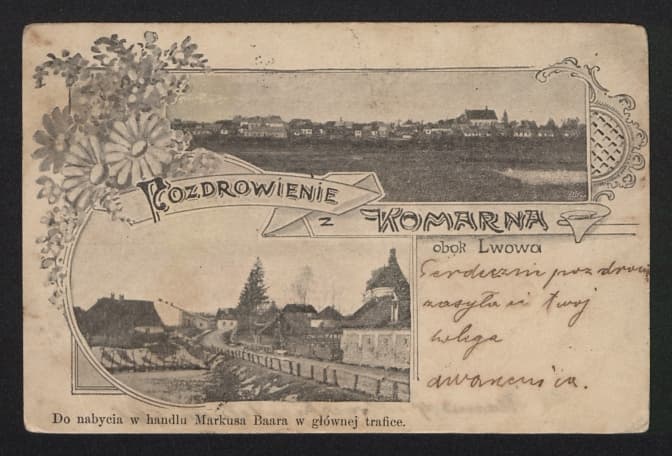 Pozdrowienie
z Komarna
obok Lwowa
zasyła ci twój
kolega
Do nabycia w handlu Markusa Baara w głównej trafice.